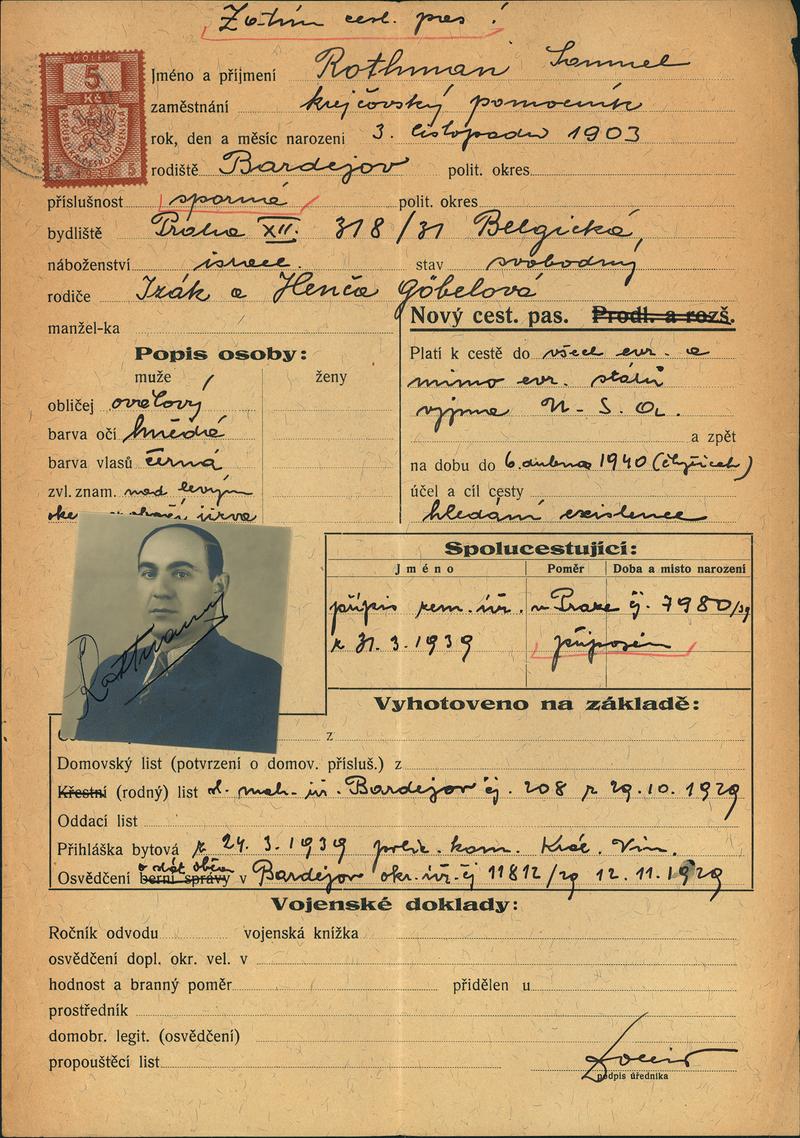 Zatím cest. pas !
KOLEK
5
Kč
REPUBLIKA ČESKOSLOVENSKÁ
5 5
Jméno a příjmení Rothman Samuel
zaměstnání krejčovský pomocník
rok, den a měsíc narození 3. listopadu 1903
rodiště Bardejov polit. okres
příslušnost sporná polit. okres
bydliště Praha XII. 318/31 Belgická,
náboženství israel. stav svobodný
rodiče Izák a Henča Göbelová
manžel-ka
Nový cest. pas. Prodl. a rozš.
Popis osoby:
muže / ženy
obličej oválový
barva očí hnědé
barva vlasů černá
zvl. znam. nad levým
okem
Platí k cestě do všech evr. a
mimo evr. států
vyjma U.S.A.
a zpět
na dobu do 6. dubna 1940 (čtyřicet)
účel a cíl cesty
hledání existence
Rothmann
Spolucestující:
Jméno Poměr Doba a místo narození
přípis zem. úř. v Praze čj. 7980/39
z 31. 3. 1939
Vyhotoveno na základě:
z
Domovský list (potvrzení o domov. přísluš.) z
Křestní (rodný) list d. mat. úř. Bardejov čj. 208 z 29. 10. 1929
Oddací list
Přihláška bytová z 24. 3. 1939 polic. kom. Král. Vin.
Osvědčení berní správy o stát. obča v Bardejov okr. úř. čj 11812/29 12. 11. 1929
Vojenské doklady:
Ročník odvodu vojenská knížka
osvědčení dopl. okr. vel. v
hodnost a branný poměr přidělen u
prostředník
domobr. legit. (osvědčení)
propouštěcí list
podpis úředníka